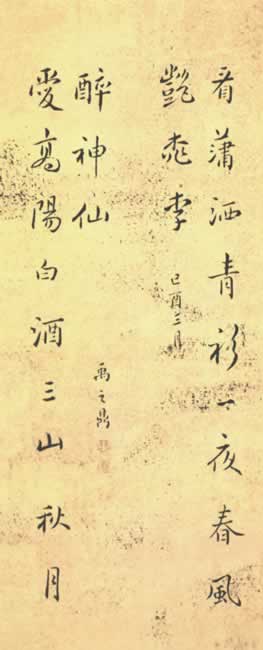 看瀟洒青衫一夜春風
艷桃李
己酉三月
愛高陽白酒三山秋月
醉神仙
禹之鼎